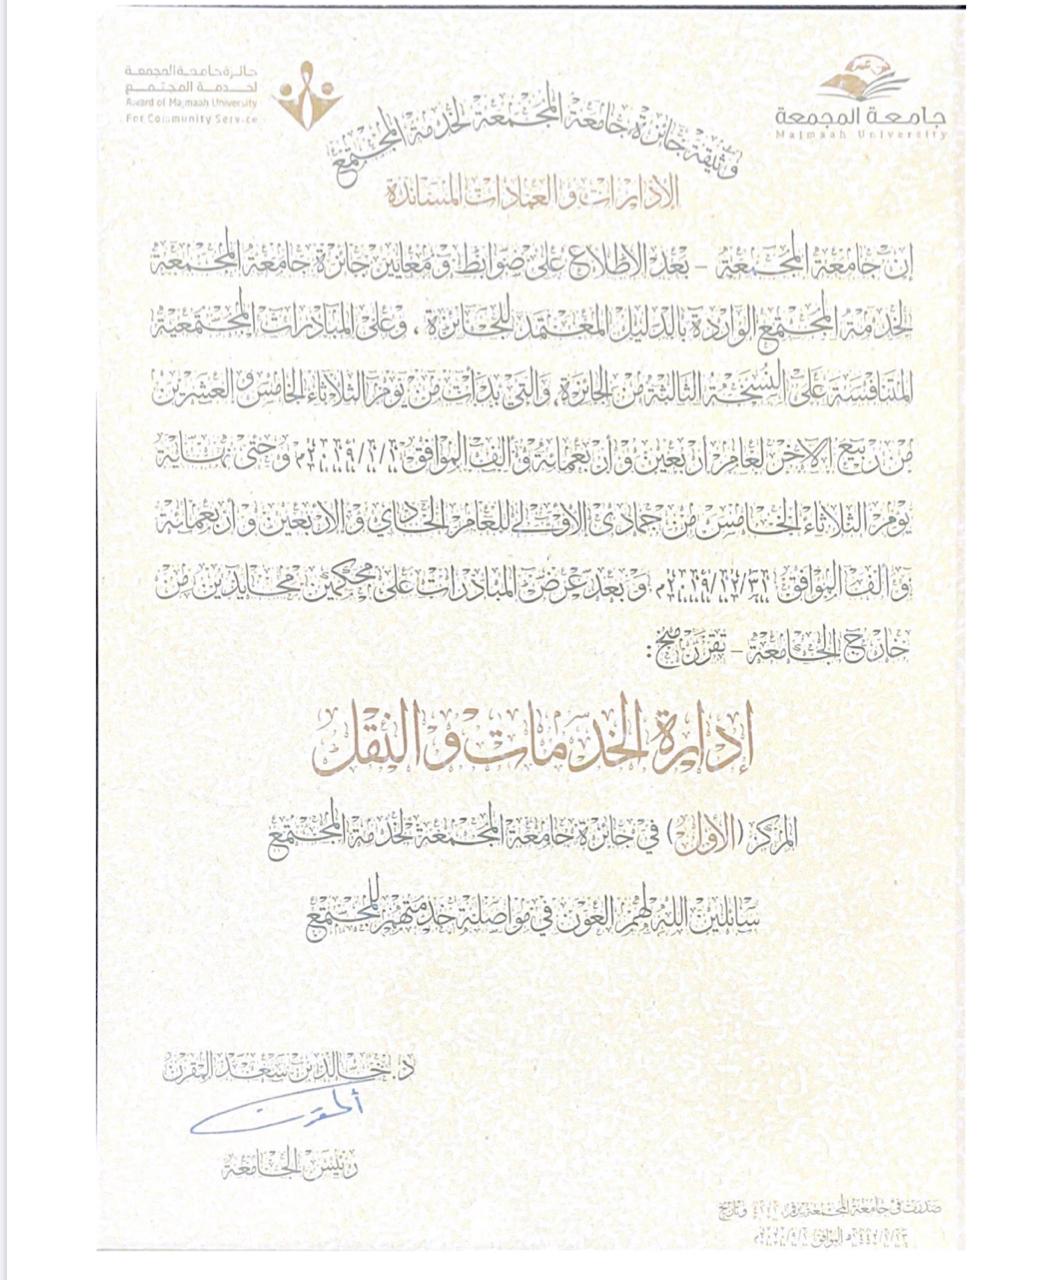 جائزة جامعة المجمعة
لخدمة المجتمع
Award of Majmaah University
For Community Service
جامعة المجمعة
Majmaah University
وثيقة جائزة جامعة المجمعة لخدمة المجتمع
الإدارات والعمادات المساندة
إن جامعة المجمعة – بعد الاطلاع على ضوابط ومعايير جائزة جامعة المجمعة
لخدمة المجتمع الواردة بالدليل المعتمد للجائزة ، وعلى المبادرات المجتمعية
المتنافسة على النسخة الثالثة من الجائزة، والتي بدأت من يوم الثلاثاء الخامس والعشرين
من ربيع الآخر لعام أربعين وأربعمائة وألف الموافق وحتى نهاية
يوم الثلاثاء الخامس من جمادى الأولى للعام الحادي والأربعين وأربعمائة
وألف الموافق ٢٠١٩/١٢/٣١م وبعد عرض المبادرات على محكمين محايدين من
خارج الجامعة – تقرر منح:
إدارة الخدمات والنقل
المركز (الأول) في جائزة جامعة المجمعة لخدمة المجتمع
سائلين الله لهم العون في مواصلة خدمتهم للمجتمع
د. خالد بن سعد المقرن
المقرن
رئيس الجامعة
صدرت في جامعة المجمعة برقم وتاريخ
الموافق